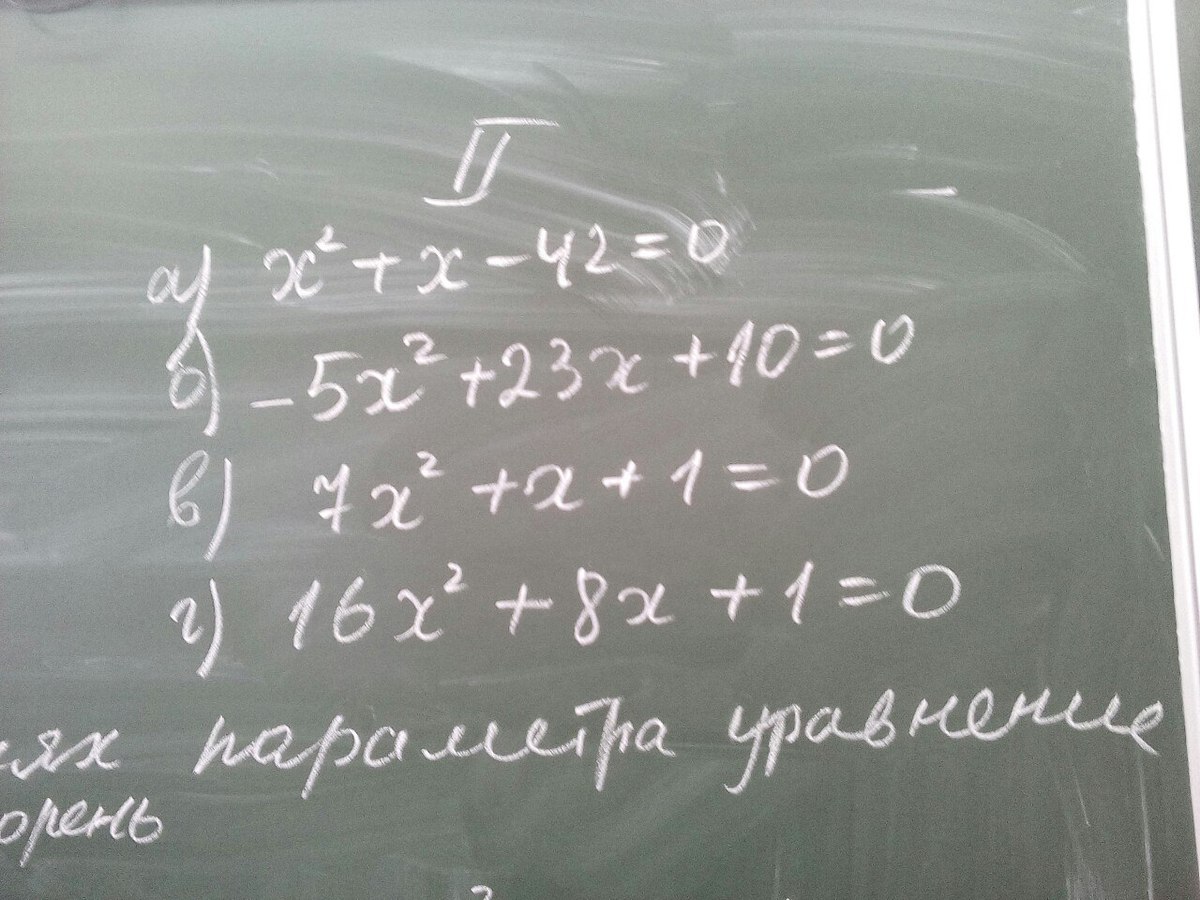 II
а) x² + x - 42 = 0
б) -5x² + 23x + 10 = 0
в) 7x² + x + 1 = 0
г) 16x² + 8x + 1 = 0
ях параметра уравнение
орень